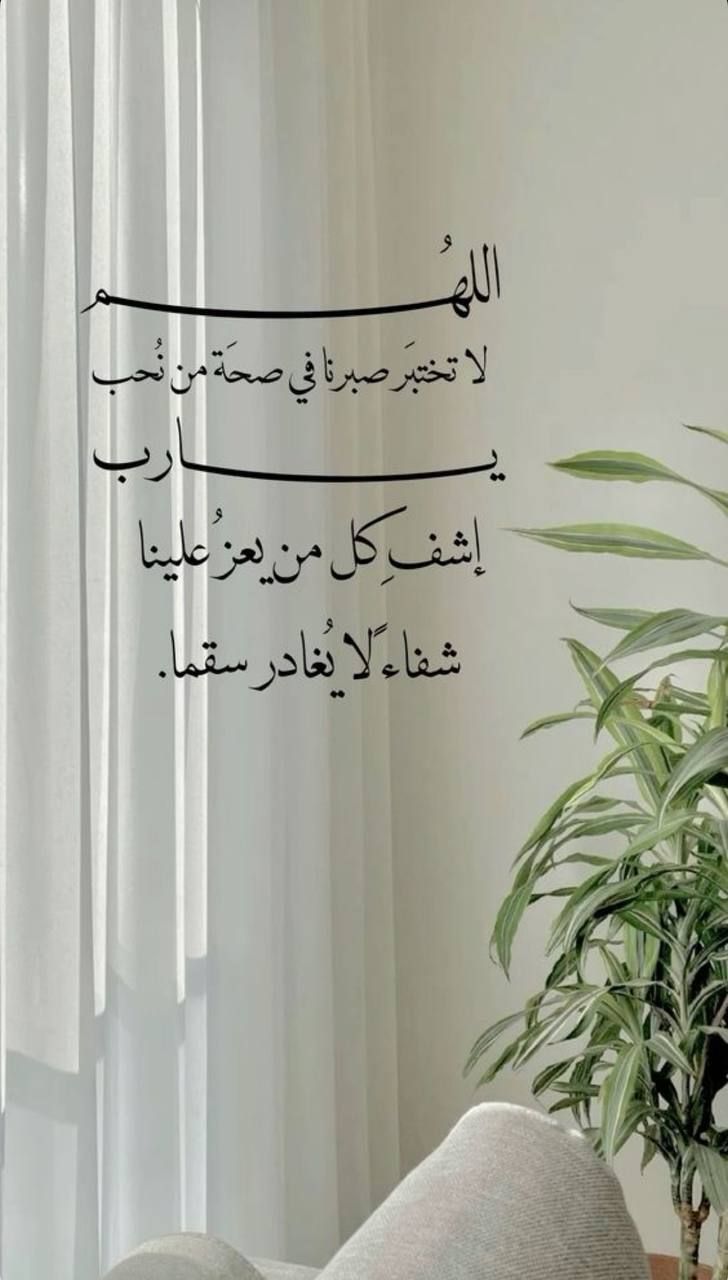 اللهُم
لا تختبَر صبرنا في صحَة من نُحب
يارب
إشفِ كل من يعزُ علينا
شفاءً لا يُغادر سقما.